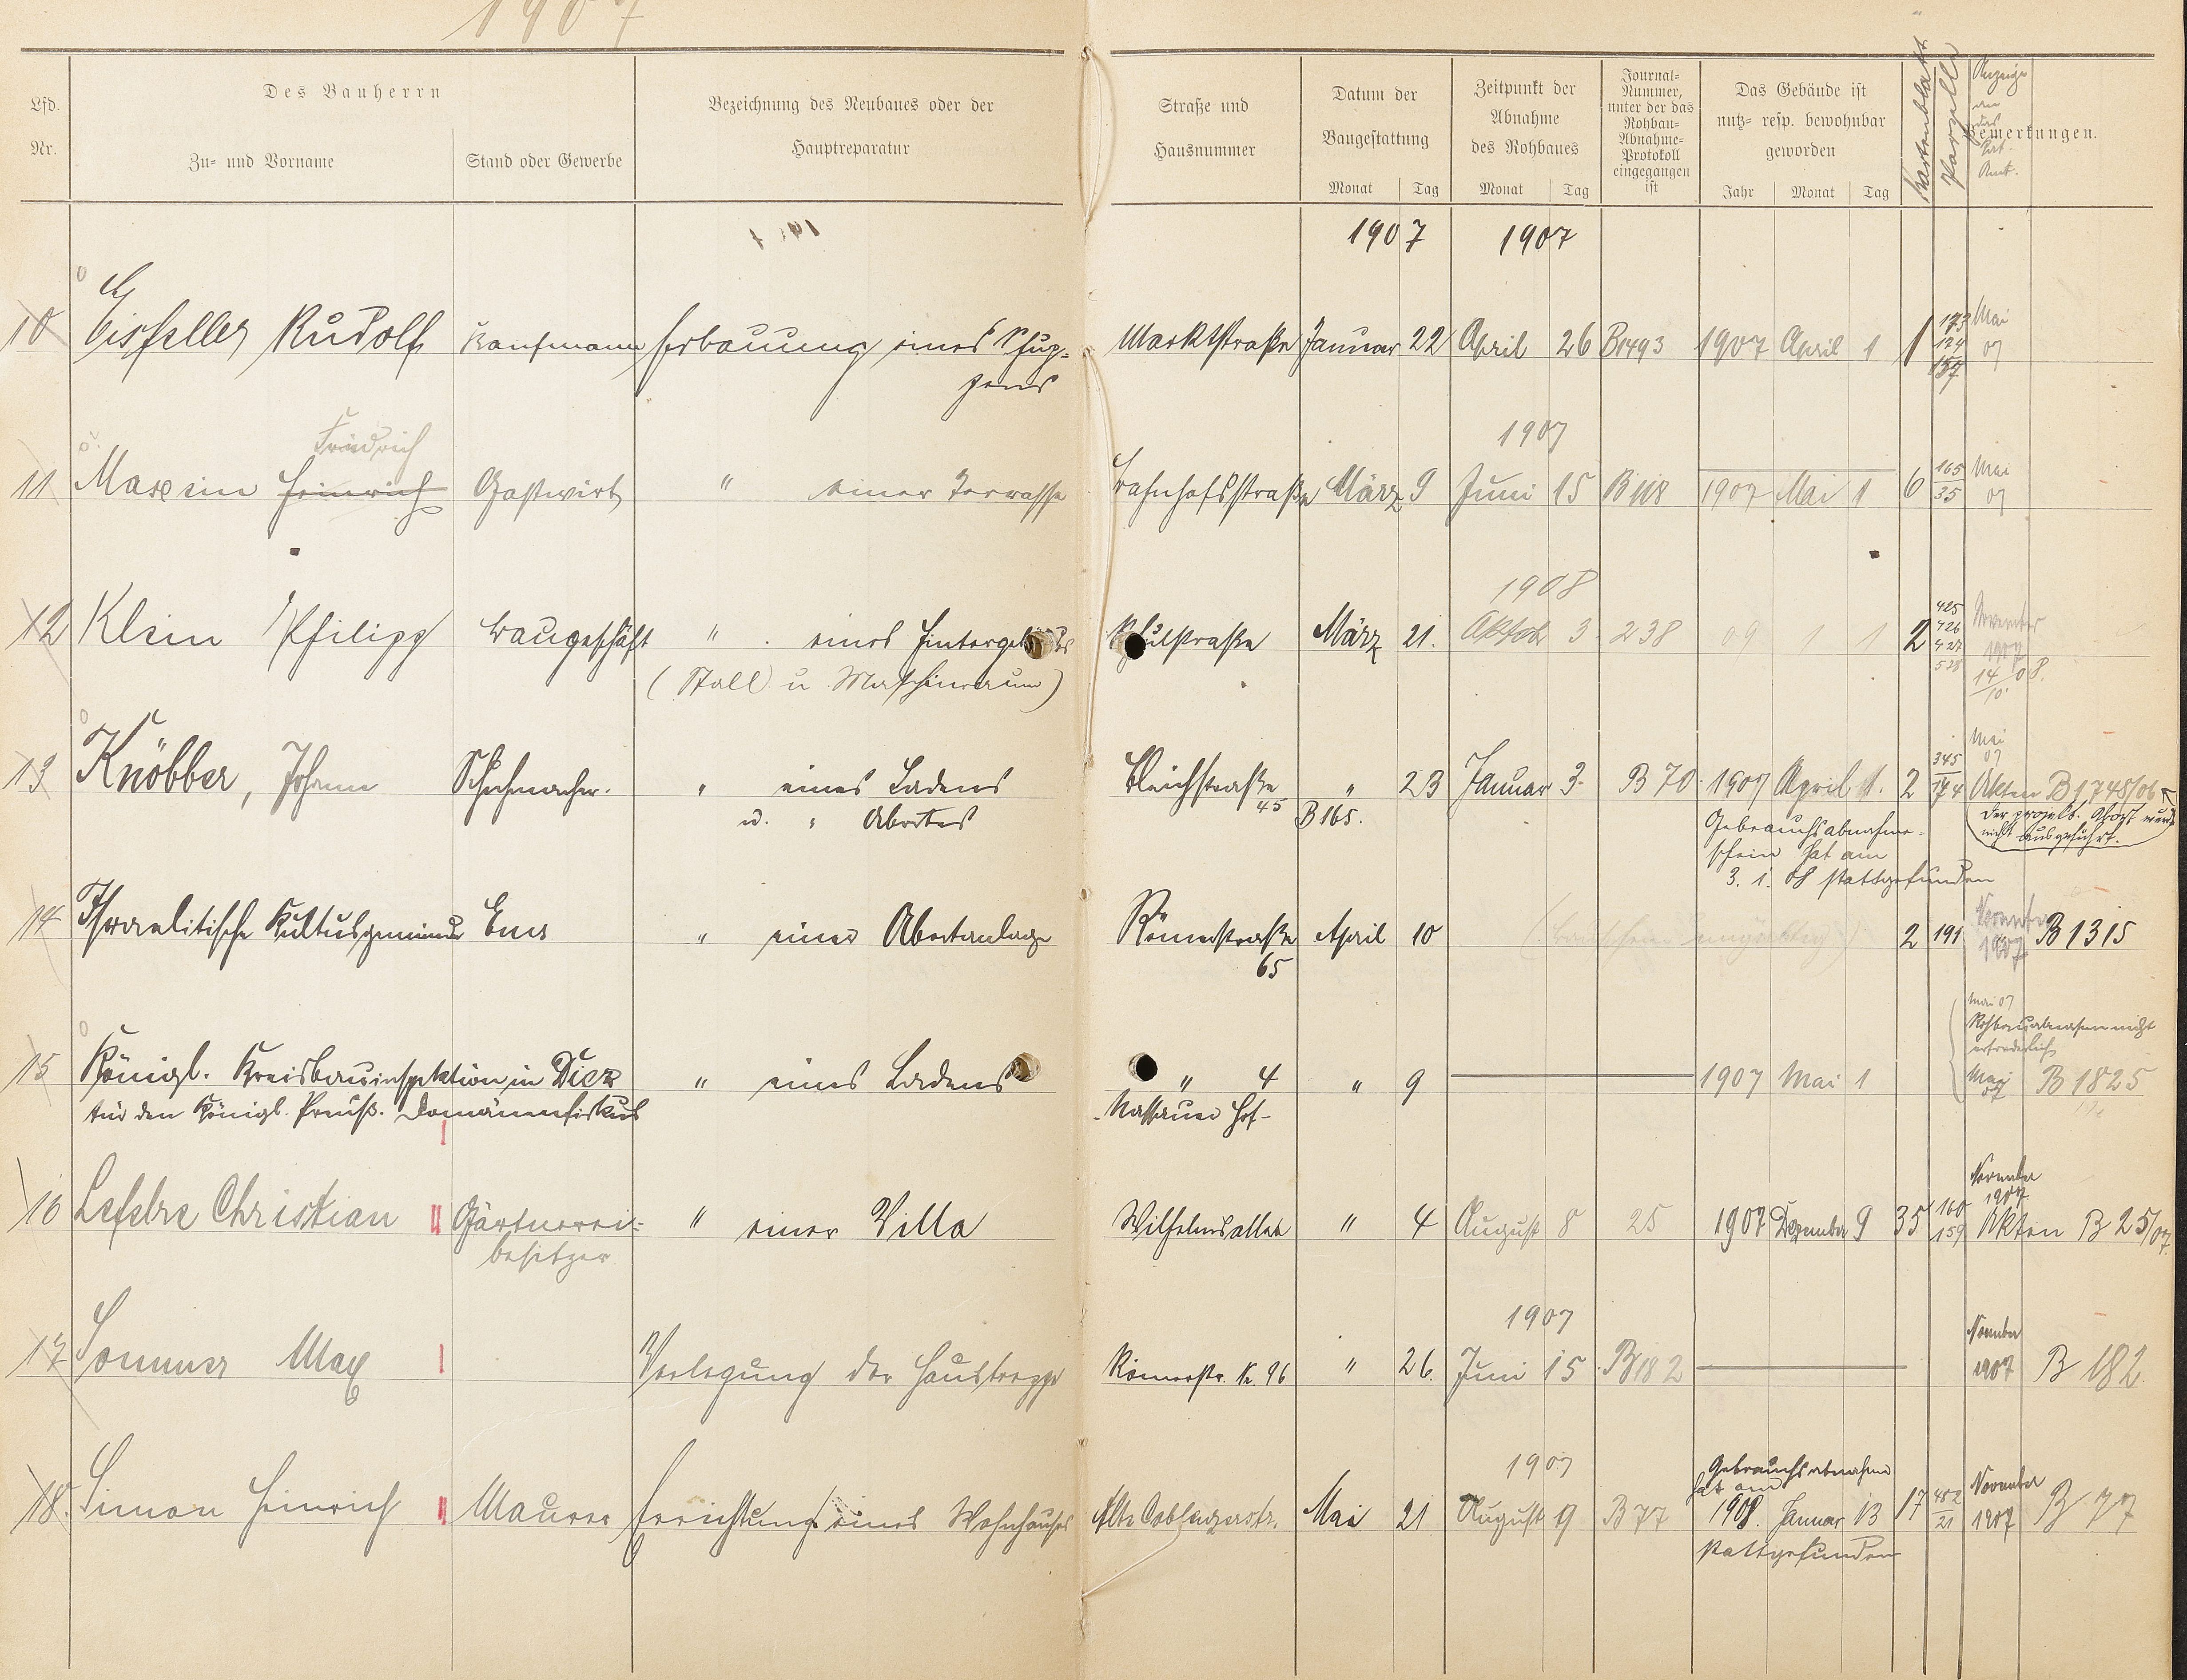 1907
Lfd. Nr.
Des Bauherrn
Zu- und Vorname
Stand oder Gewerbe
Bezeichnung des Neubaues oder der Hauptreparatur
Straße und Hausnummer
Datum der Baugestattung
Monat Tag
Zeitpunkt der Abnahme des Rohbaues
Monat Tag
Journal-Nummer, unter der das Rohbau-Abnahme-Protokoll eingegangen ist
Das Gebäude ist nutz- resp. bewohnbar geworden
Jahr Monat Tag
Kartenblatt
Parzelle
Anzeige an das Kat. Amt.
Bemerkungen.
1907 1907
10 Eisfeller Rudolf Kaufmann Erbauung eines Marktstraße Januar 22 April 26 B1493 1907 April 1 1 173 124 157 Mai 07
Friedrich 1907
11 Maxein Heinrich Gastwirt " einer Terrasse Bahnhofsstraße März 9 Juni 15 B 118 1907 Mai 1 6 165/35 Mai 07
1908
12 Klein Philipp Baugeschäft " eines Hintergebäudes Schulstraße März 21. Oktob 3 238 09 1 1 2 425 426 427 528 November 1907
(Stall u Maschinenraum) 14/10 08.
13 Knöbber, Johann Schuhmacher. " eines Ladens Bleichstraße " 23 Januar 3. B 70 1907 April 1. 2 345/174 Mai 07 Akten B1748/06
u. " Abortes 45 B165. Gebrauchsabnahme-
der projekt. Abort wurde
nicht ausgeführt.
schein hat am
3. 1. 08 stattgefunden
14 Israelitische Kultusgemeinde Ems " einer Abortanlage Römerstraße April 10 2 191 November 1907 B 1315
65
mai 07
Rohbauabnahme nicht
erforderlich
15 Königl. Kreisbauinspektion in Diez " eines Ladens " 4 " 9 1907 Mai 1 Mai 07 B 1825
für den Königl. Preuß. Domänenfiskus - Nassauer Hof -
16 Lefebre Christian Gärtnerei- " einer Villa Wilhelmsallee " 4 August 8 25 1907 Dezember 9 35 160 159 November 1907 Akten B 25/07
besitzer
1907
17 Sommer Max Verlegung der Haustreppe Römerstr. Nr. 96 " 26. Juni 15 B 182 November 1907 B 182.
1907 Gebrauchsabnahme
hat am
18. Simon Heinrich Maurer Errichtung eines Wohnhauses Alte Coblenzerstr. Mai 21 August 9 B 77 1908. Januar 13 17 452/21 November 1907 B 77
stattgefunden